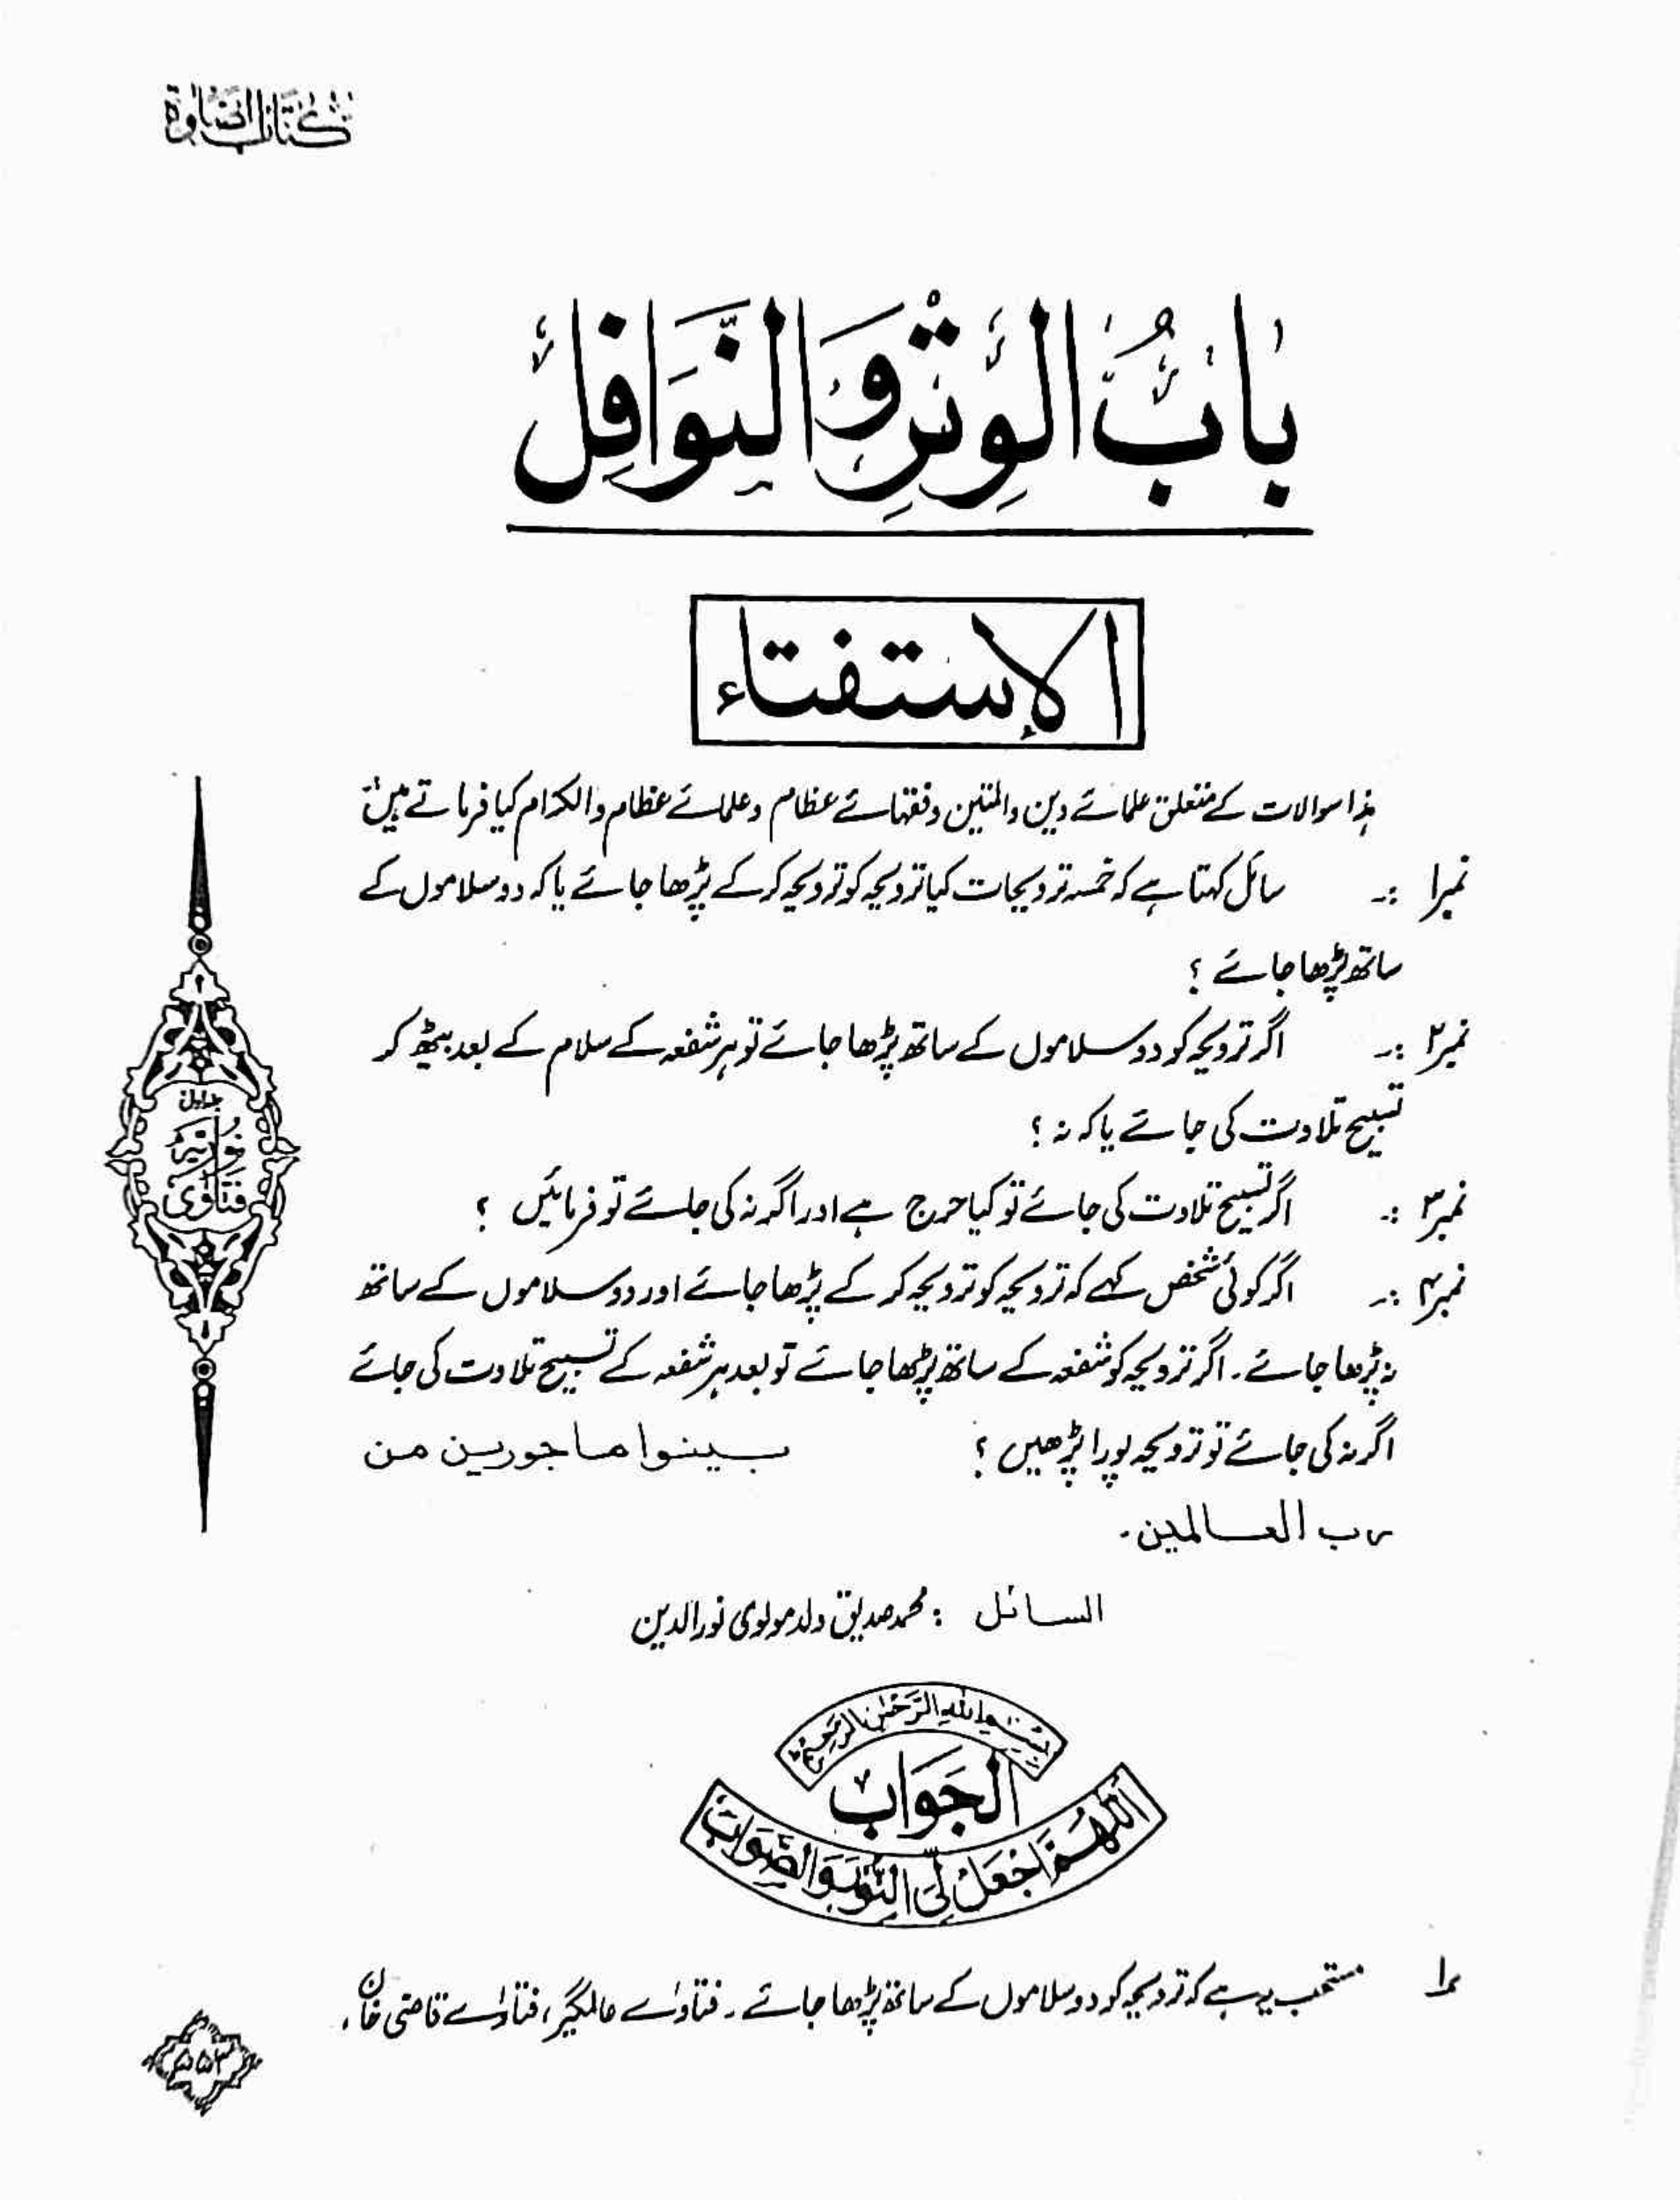 كتاب الصلوٰة
بَابُ الْوِتْرِ وَالنَّوَافِلِ
الاستفتاء
ہذا سوالات کے متعلق علمائے دین والمتین وفقہائے عظام وعلمائے عظام والکرام کیا فرماتے ہیں؛
نمبر۱ :۔ سائل کہتا ہے کہ خمسہ ترویحات کیا ترویحہ کو ترویحہ کرکے پڑھا جائے یا کہ دو سلاموں کے
ساتھ پڑھا جائے ؟
نمبر۲ :۔ اگر ترویحہ کو دو سلاموں کے ساتھ پڑھا جائے تو ہر شفعہ کے سلام کے بعد بیٹھ کر
تسبیح تلاوت کی جائے یا کہ نہ ؟
نمبر۳ :۔ اگر تسبیح تلاوت کی جائے تو کیا حرج ہے اور اگر نہ کی جائے تو فرمائیں ؟
نمبر۴ :۔ اگر کوئی شخص کہے کہ ترویحہ کو ترویحہ کر کے پڑھا جائے اور دو سلاموں کے ساتھ
نہ پڑھا جائے ۔ اگر ترویحہ کو شفعہ کے ساتھ پڑھا جائے تو بعد ہر شفعہ کے تسبیح تلاوت کی جائے
اگر نہ کی جائے تو ترویحہ پورا پڑھیں ؟ بینوا ماجورین من
رب العالمین ۔
السائل : محمد صدیق ولد مولوی نور الدین
جلد اول
فتاوٰی نوریہ
بسم اللہ الرحمٰن الرحیم
الجَوَاب
اَللّٰهُمَّ اجْعَلْ لِیَ النُّوْرَ وَالصَّوَابَ
۱ مستحب یہ ہے کہ ترویحہ کو دو سلاموں کے ساتھ پڑھا جائے ۔ فتاوٰے عالمگیر، فتاوٰے قاضی خان،
۵۵۳